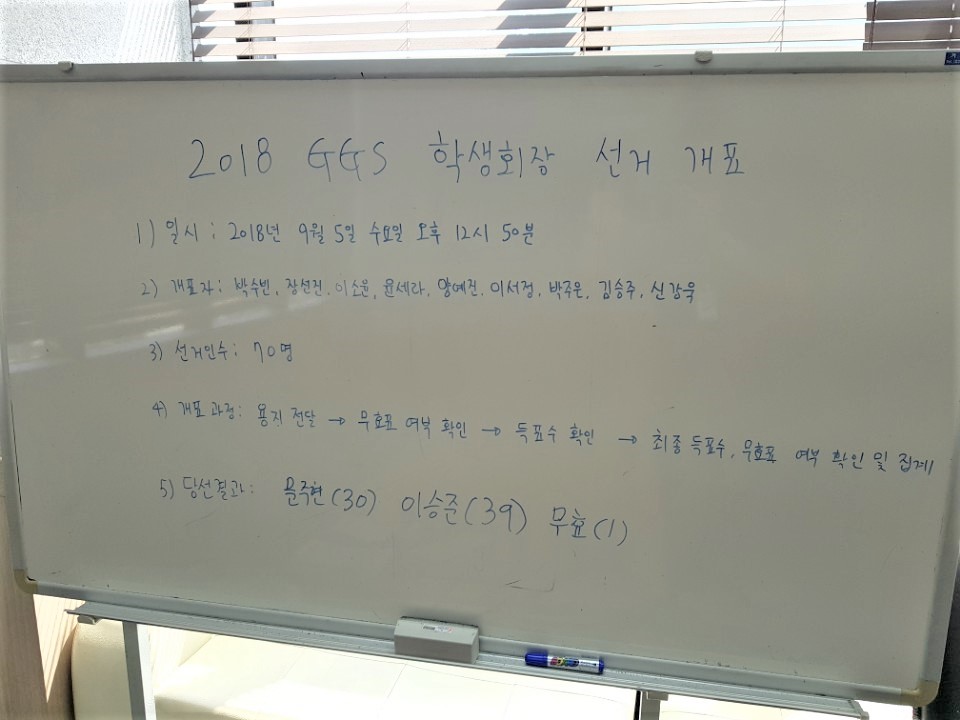 2018 GGS 학생회장 선거 개표
1) 일시 : 2018년 9월 5일 수요일 오후 12시 50분
2) 개표자 : 박수빈, 장선진, 이소윤, 윤세라, 양예진, 이서정, 박주은, 김승주, 신강욱
3) 선거인수 : 70명
4) 개표 과정 : 용지 전달 → 무효표 여부 확인 → 득표수 확인 → 최종 득표수, 무효표 여부 확인 및 집계
5) 당선결과 : 문주현(30) 이승준(39) 무효(1)